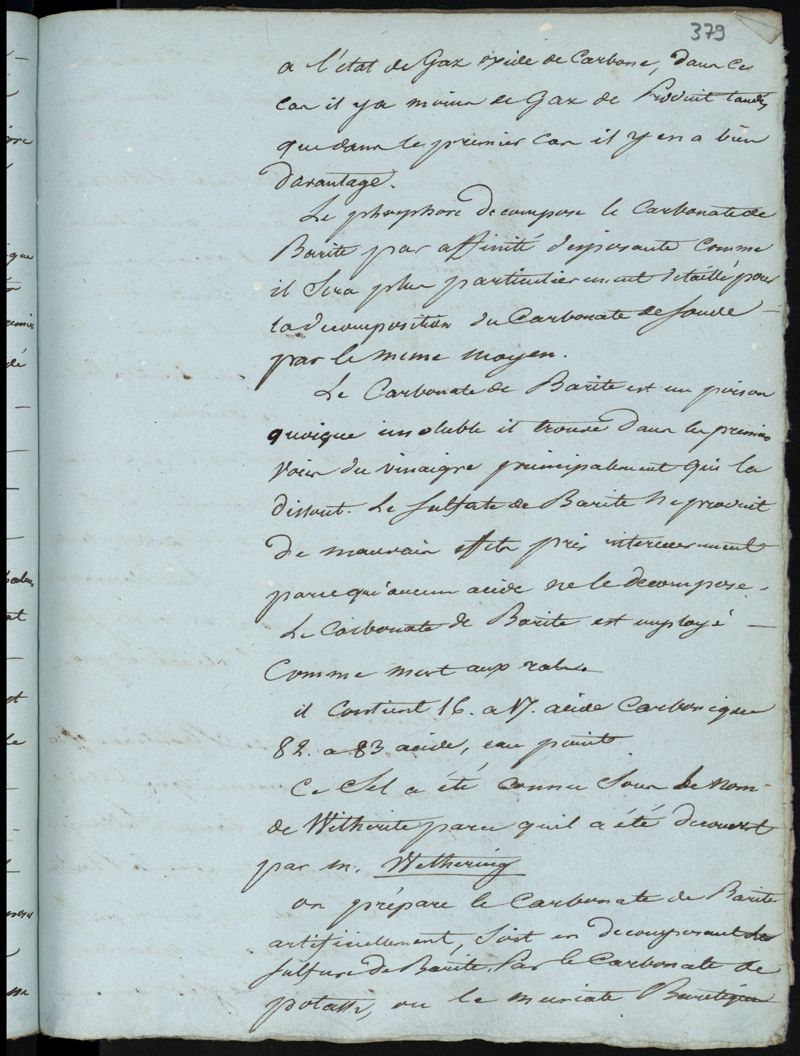 379
a l'état de Gaz oxide de Carbone, dans ce
cas il y a moins de Gaz de Produit tandis
que dans le premier cas il y en a bien
davantage.
Le phosphore decompose le Carbonate de
Barite par affinité disposante comme
il Sera plus particulierement detaillé pour
la decomposition du Carbonate de soude —
par le meme moyen.
Le Carbonate de Barite est un poison
quoique insoluble il trouve dans les premieres
voies du vinaigre principalement qui la
dissout. Le sulfate de Barite ne produit
de mauvais effets pris interieurement
parce qu'aucun acide ne le decompose.
Le Carbonate de Barite est employé —
Comme mort aux rats.
il contient 16. a 17. acide Carbonique
82. a 83 acide, eau point
Ce Sel a été connu Sous le nom
de Witherite parce quil a été decouvert
par m. Wethering
on prépare le Carbonate de Barite
artificiellement, Soit en decomposant le
sulfure de Barite. Par le Carbonate de
potasse, ou le muriate Baritique